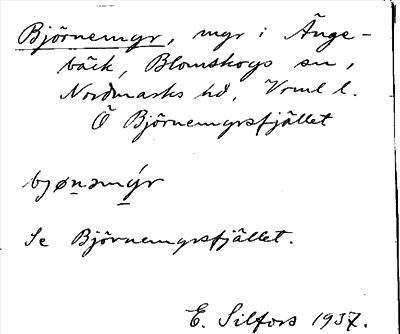 Björnemyr, myr i Änge-
bäck, Blomskogs sn,
Nordmarks hd, Vrml l.
Ö Björnemyrsfjället
bjønəmýr
Se Björnemyrsfjället.
E. Silfors 1937.